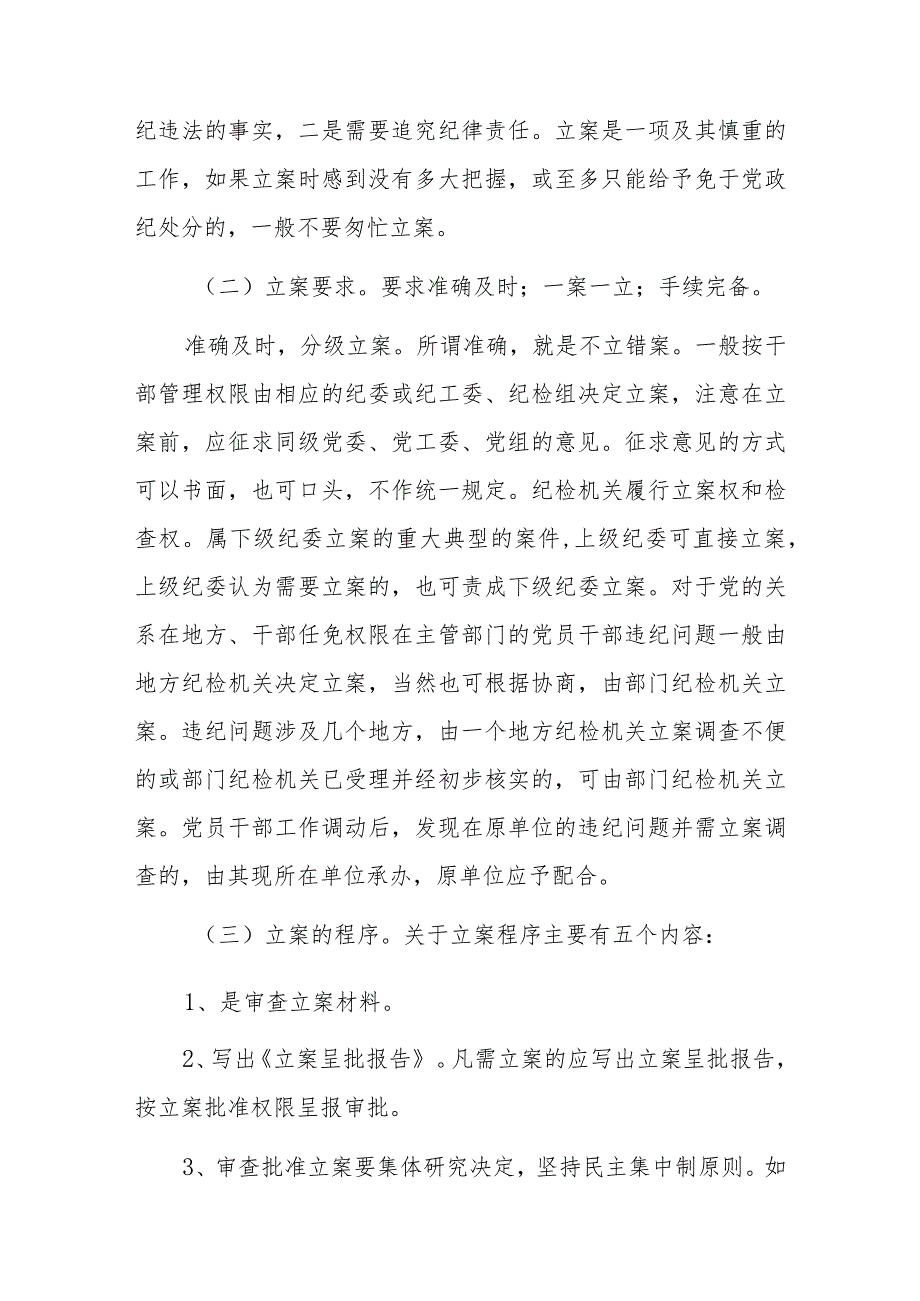 纪违法的事实，二是需要追究纪律责任。立案是一项及其慎重的
工作，如果立案时感到没有多大把握，或至多只能给予免于党政
纪处分的，一般不要匆忙立案。
（二）立案要求。要求准确及时；一案一立；手续完备。
准确及时，分级立案。所谓准确，就是不立错案。一般按干
部管理权限由相应的纪委或纪工委、纪检组决定立案，注意在立
案前，应征求同级党委、党工委、党组的意见。征求意见的方式
可以书面，也可口头，不作统一规定。纪检机关履行立案权和检
查权。属下级纪委立案的重大典型的案件,上级纪委可直接立案，
上级纪委认为需要立案的，也可责成下级纪委立案。对于党的关
系在地方、干部任免权限在主管部门的党员干部违纪问题一般由
地方纪检机关决定立案，当然也可根据协商，由部门纪检机关立
案。违纪问题涉及几个地方，由一个地方纪检机关立案调查不便
的或部门纪检机关已受理并经初步核实的，可由部门纪检机关立
案。党员干部工作调动后，发现在原单位的违纪问题并需立案调
查的，由其现所在单位承办，原单位应予配合。
（三）立案的程序。关于立案程序主要有五个内容：
1、是审查立案材料。
2、写出《立案呈批报告》。凡需立案的应写出立案呈批报告，
按立案批准权限呈报审批。
3、审查批准立案要集体研究决定，坚持民主集中制原则。如